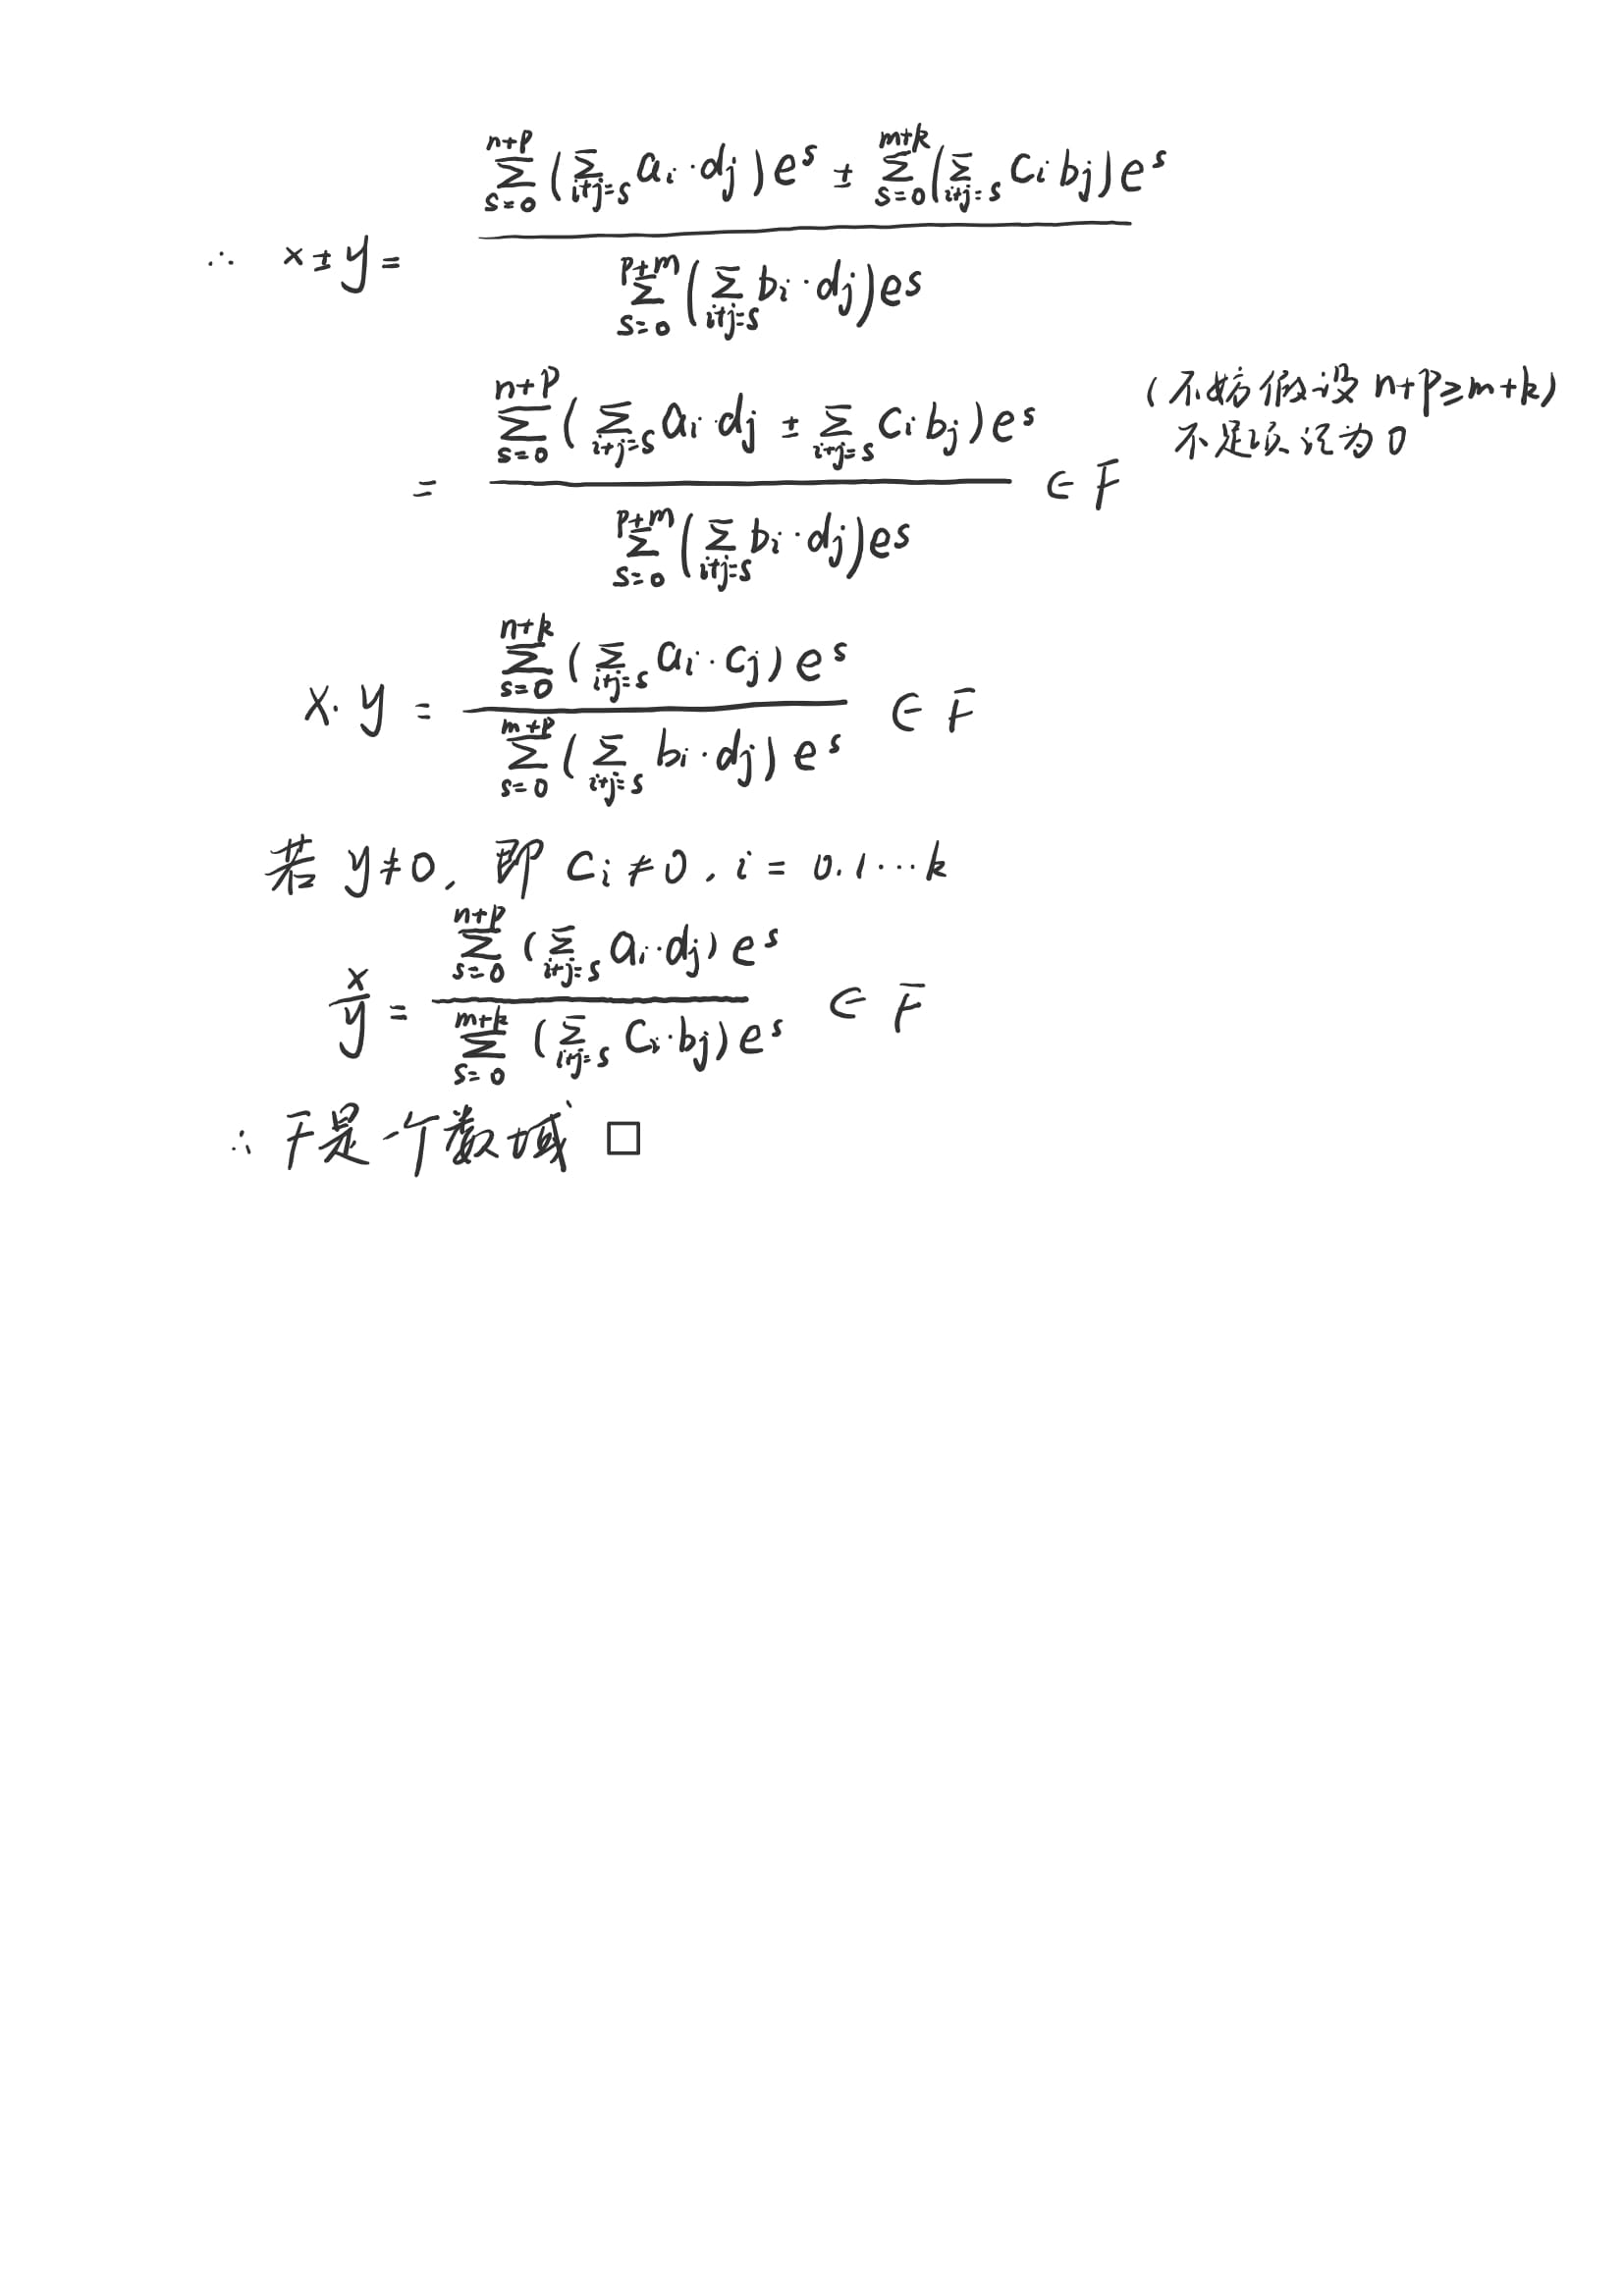 ∴ x±y= \frac{\sum_{s=0}^{n+p}(\sum_{i+j=s} a_i·d_j)e^s ± \sum_{s=0}^{m+k}(\sum_{i+j=s} c_i b_j)e^s}{\sum_{s=0}^{p+m}(\sum_{i+j=s} b_i·d_j)e^s}
= \frac{\sum_{s=0}^{n+p}(\sum_{i+j=s} a_i·d_j ± \sum_{i+j=s} c_i b_j)e^s}{\sum_{s=0}^{p+m}(\sum_{i+j=s} b_i·d_j)e^s} ∈ F (不妨假设 n+p≥m+k)
不足该设为0
x·y = \frac{\sum_{s=0}^{n+k}(\sum_{i+j=s} a_i·c_j)e^s}{\sum_{s=0}^{m+p}(\sum_{i+j=s} b_i·d_j)e^s} ∈ F
若 y≠0, 即 c_i≠0, i=0.1…k
\frac{x}{y} = \frac{\sum_{s=0}^{n+p}(\sum_{i+j=s} a_i·d_j)e^s}{\sum_{s=0}^{m+k}(\sum_{i+j=s} c_i·b_j)e^s} ∈ F
∴ F是一个数域 □